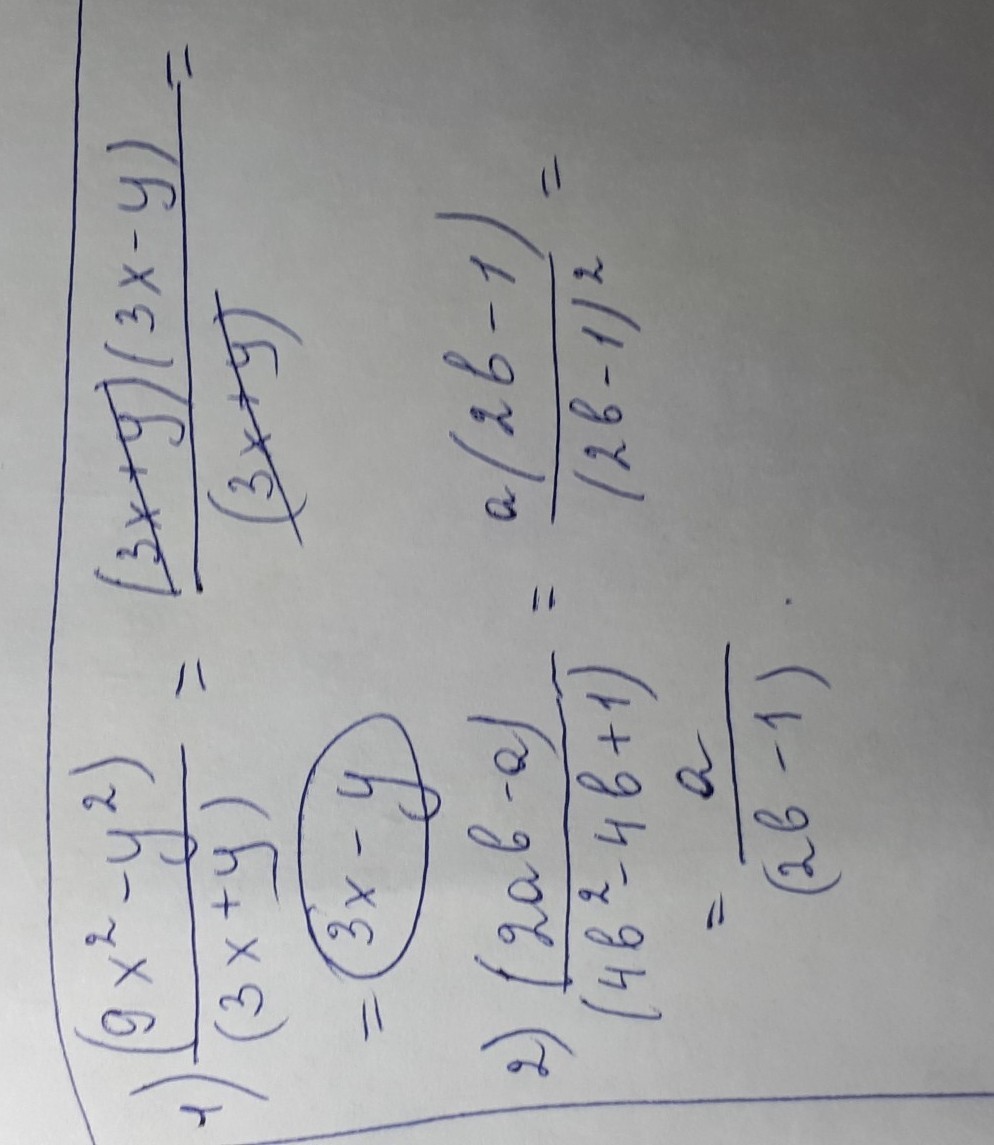 1) (9x² - y²) / (3x + y) = (3x + y)(3x - y) / (3x + y) =
= (3x - y
2) (2ab - a) / (4b² - 4b + 1) = a(2b - 1) / (2b - 1)² =
= a / (2b - 1) .